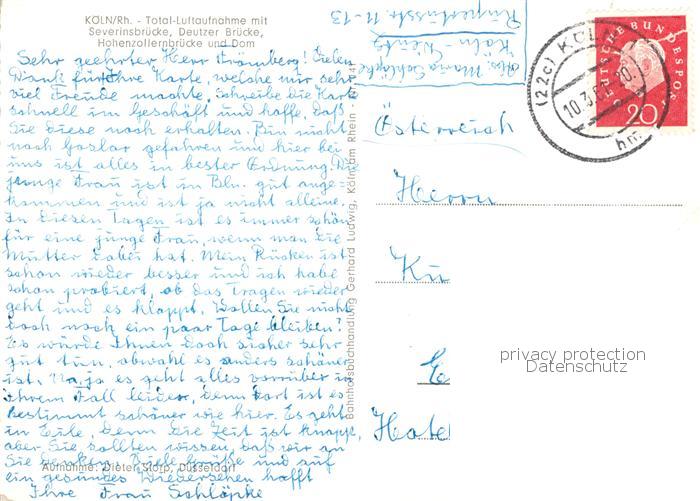 KÖLN/Rh. - Total-Luftaufnahme mit
Severinsbrücke, Deutzer Brücke,
Hohenzollernbrücke und Dom
Sehr geehrter Herr Frömberg! Lieben
Dank für Ihre Karte, welche mir sehr
viel Freude machte. Schreibe die Karte
schnell im Geschäft und hoffe, daß
Sie diese noch erhalten. Bin nicht
nach Goslar gefahren und hier bei
uns ist alles in bester Ordnung. Die
junge Frau ist in Bln. gut ange-
kommen und ist ja nicht alleine.
In diesen Tagen ist es immer schön
für eine junge Frau, wenn man die
Mutter dabei hat. Mein Rücken ist
schon wieder besser und ich habe
schon probiert, ob das Tragen wieder
geht und es klappt. Wollen Sie nicht
doch noch ein paar Tage bleiben?
Es würde Ihnen doch sicher sehr
gut tun, obwohl es anders schöner
ist. Na, ja es geht alles vorrüber in
Ihrem Fall leider, denn dort ist es
bestimmt schöner wie hier. Es geht
in Eile, denn die Zeit ist knapp,
aber Sie sollten wissen, daß wir an
Sie denken. Viele Grüße und auf
ein gesundes Wiedersehen hofft
Ihre Frau Schlöpke
Aufnahme: Dieter Storp, Düsseldorf
Bahnhofsbuchhandlung Gerhard Ludwig, Köln am Rhein
Abs. Maria Schlöpke
Köln-Deutz
Rupertusstr. 11-13
DEUTSCHE BUNDESPOST
20
(22c) KÖLN
10.3.61
hm
Österreich
Herrn
Ku
E
Hote
privacy protection
Datenschutz